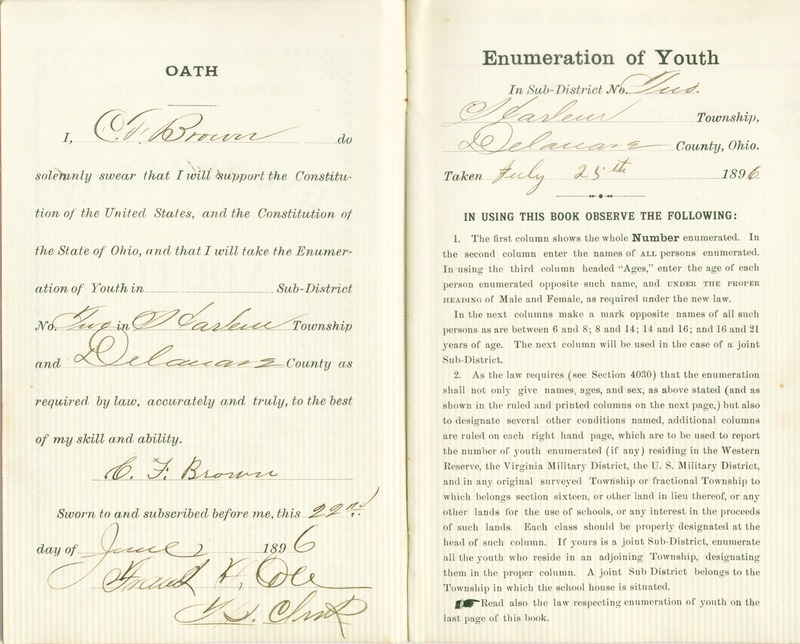 OATH
I, C. F. Brown do
solemnly swear that I will support the Constitu-
tion of the United States, and the Constitution of
the State of Ohio, and that I will take the Enumer-
ation of Youth in Sub-District
No. Two in Harlem Township
and Delaware County as
required by law, accurately and truly, to the best
of my skill and ability.
C. F. Brown
Sworn to and subscribed before me, this 22nd
day of June 1896
Frank H. Cole
T. S. Clerk
Enumeration of Youth
In Sub-District No. Two.
Harlem Township,
Delaware County, Ohio.
Taken July 25th 1896
IN USING THIS BOOK OBSERVE THE FOLLOWING:
1. The first column shows the whole Number enumerated. In
the second column enter the names of ALL persons enumerated.
In using the third column headed "Ages," enter the age of each
person enumerated opposite such name, and UNDER THE PROPER
HEADING of Male and Female, as required under the new law.
In the next columns make a mark opposite names of all such
persons as are between 6 and 8; 8 and 14; 14 and 16; and 16 and 21
years of age. The next column will be used in the case of a joint
Sub-District.
2. As the law requires (see Section 4030) that the enumeration
shall not only give names, ages, and sex, as above stated (and as
shown in the ruled and printed columns on the next page,) but also
to designate several other conditions named, additional columns
are ruled on each right hand page, which are to be used to report
the number of youth enumerated (if any) residing in the Western
Reserve, the Virginia Military District, the U. S. Military District,
and in any original surveyed Township or fractional Township to
which belongs section sixteen, or other land in lieu thereof, or any
other lands for the use of schools, or any interest in the proceeds
of such lands. Each class should be properly designated at the
head of such column. If yours is a joint Sub-District, enumerate
all the youth who reside in an adjoining Township, designating
them in the proper column. A joint Sub District belongs to the
Township in which the school house is situated.
Read also the law respecting enumeration of youth on the
last page of this book.